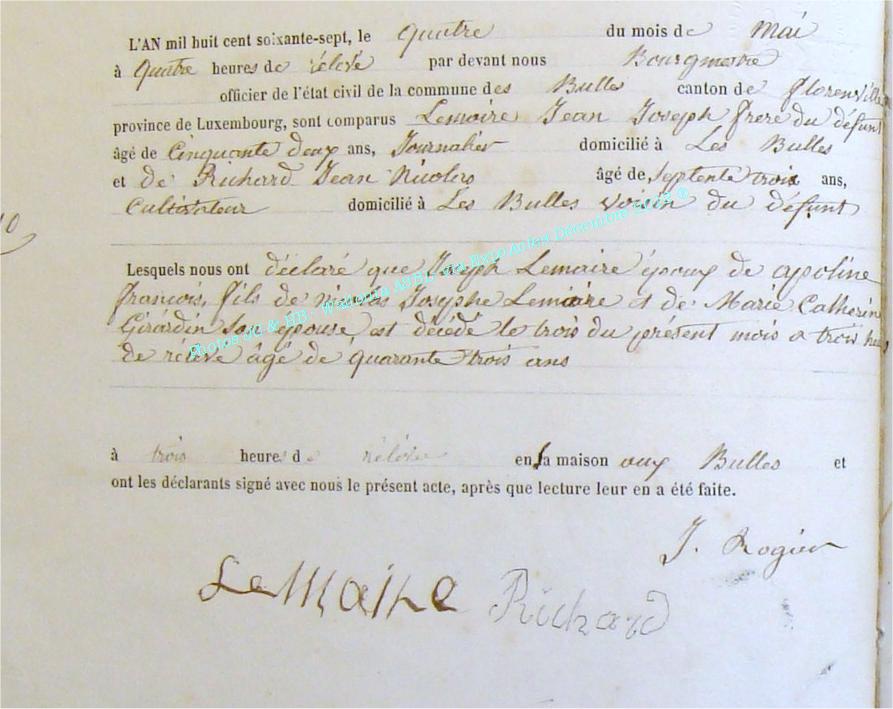 L'AN mil huit cent soixante-sept, le quatre du mois de Mai
à quatre heures de rélevé par devant nous Bourgmestre
officier de l'état civil de la commune des Bulles canton de florenville
province de Luxembourg, sont comparus Lemaire Jean Joseph frere du défunt
âgé de Cinquante deux ans, Journalier domicilié à Les Bulles
et de Richard Jean Nicolas âgé de septente trois ans,
Cultivateur domicilié à Les Bulles voisin du défunt
10
Lesquels nous ont déclaré que Joseph Lemaire époux de apoline
francois, fils de nicolas Josephe Lemaire et de Marie Catherin
Girardin son epouse est décédé le trois du présent mois a trois heu
de rélevé agé de quarante trois ans
à trois heures de rélevée en sa maison aux Bulles et
ont les déclarants signé avec nous le présent acte, après que lecture leur en a été faite.
J. Rogier
LeMaire Richard
Photos JC & HB - Wallonia ASBL - via Expo Actes Décembre 2012 ®